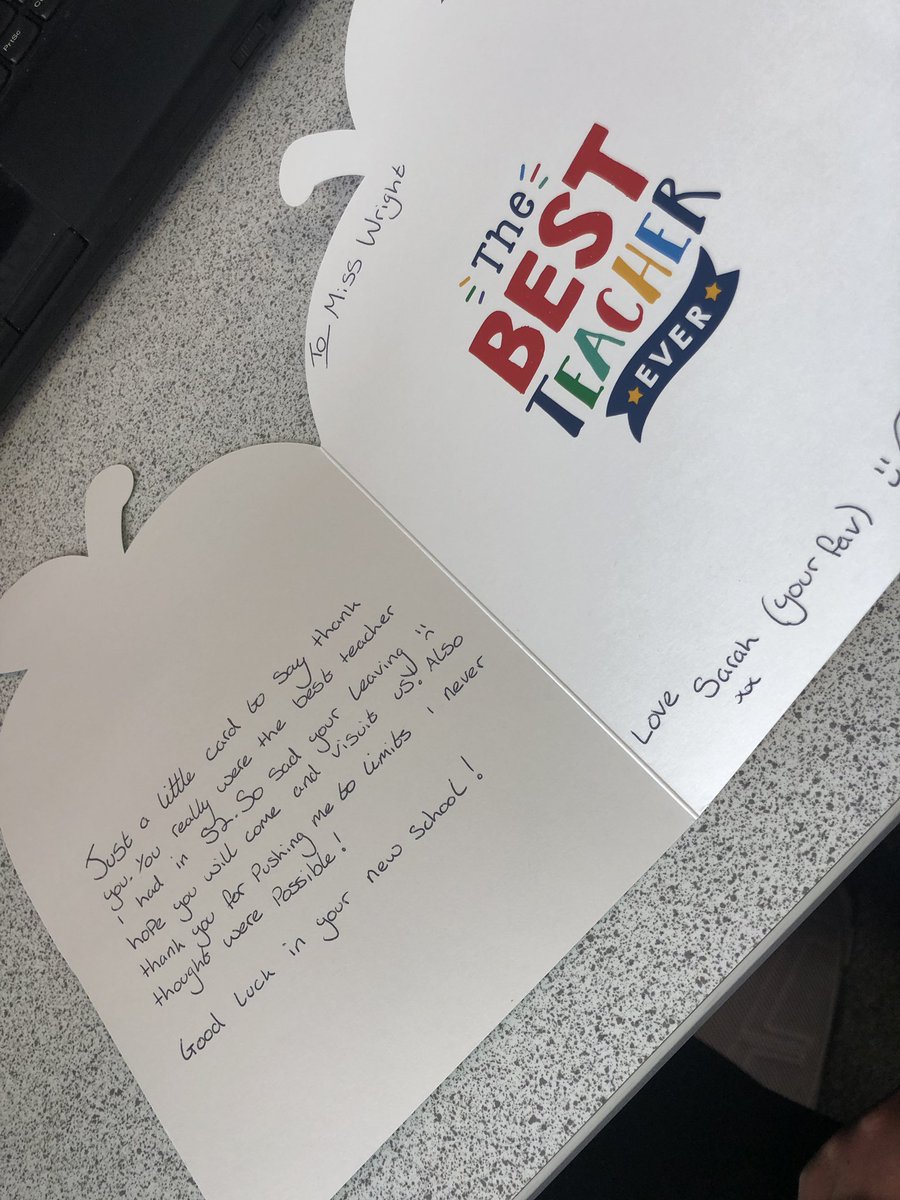 PrtSc
To Miss Wright
The
BEST
TEACHER
EVER
Just a little card to say thank
you. You really were the best teacher
I had in S2. So sad your leaving :(
hope you will come and visuit us! Also
thank you for Pushing me to limits i never
thought were Possible!
Good luck in your new school!
Love Sarah (your fav) :)
xx